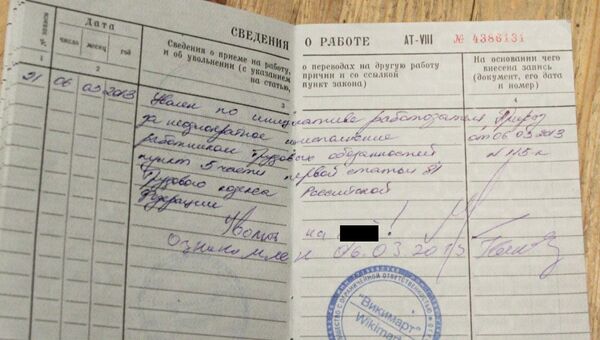 СВЕДЕНИЯ О РАБОТЕ АТ-VIII № 4386131
№ записи
Дата
число месяц год
Сведения о приеме на работу, о переводах на другую работу
и об увольнении (с указанием причин и со ссылкой
на статью, пункт закона)
На основании чего
внесена запись
(документ, его дата
и номер)
1 2 3 4
21 06 03 2013 Уволен по инициативе работодателя Приказ
за неоднократное неисполнение от 06.03.2013
работником трудовых обязанностей № 115к
пункт 5 части первой статьи 81
Трудового кодекса Российской
Федерации
Уволен на !
Ознакомлен 06.03.2013
"Викимарт"
Wikimart